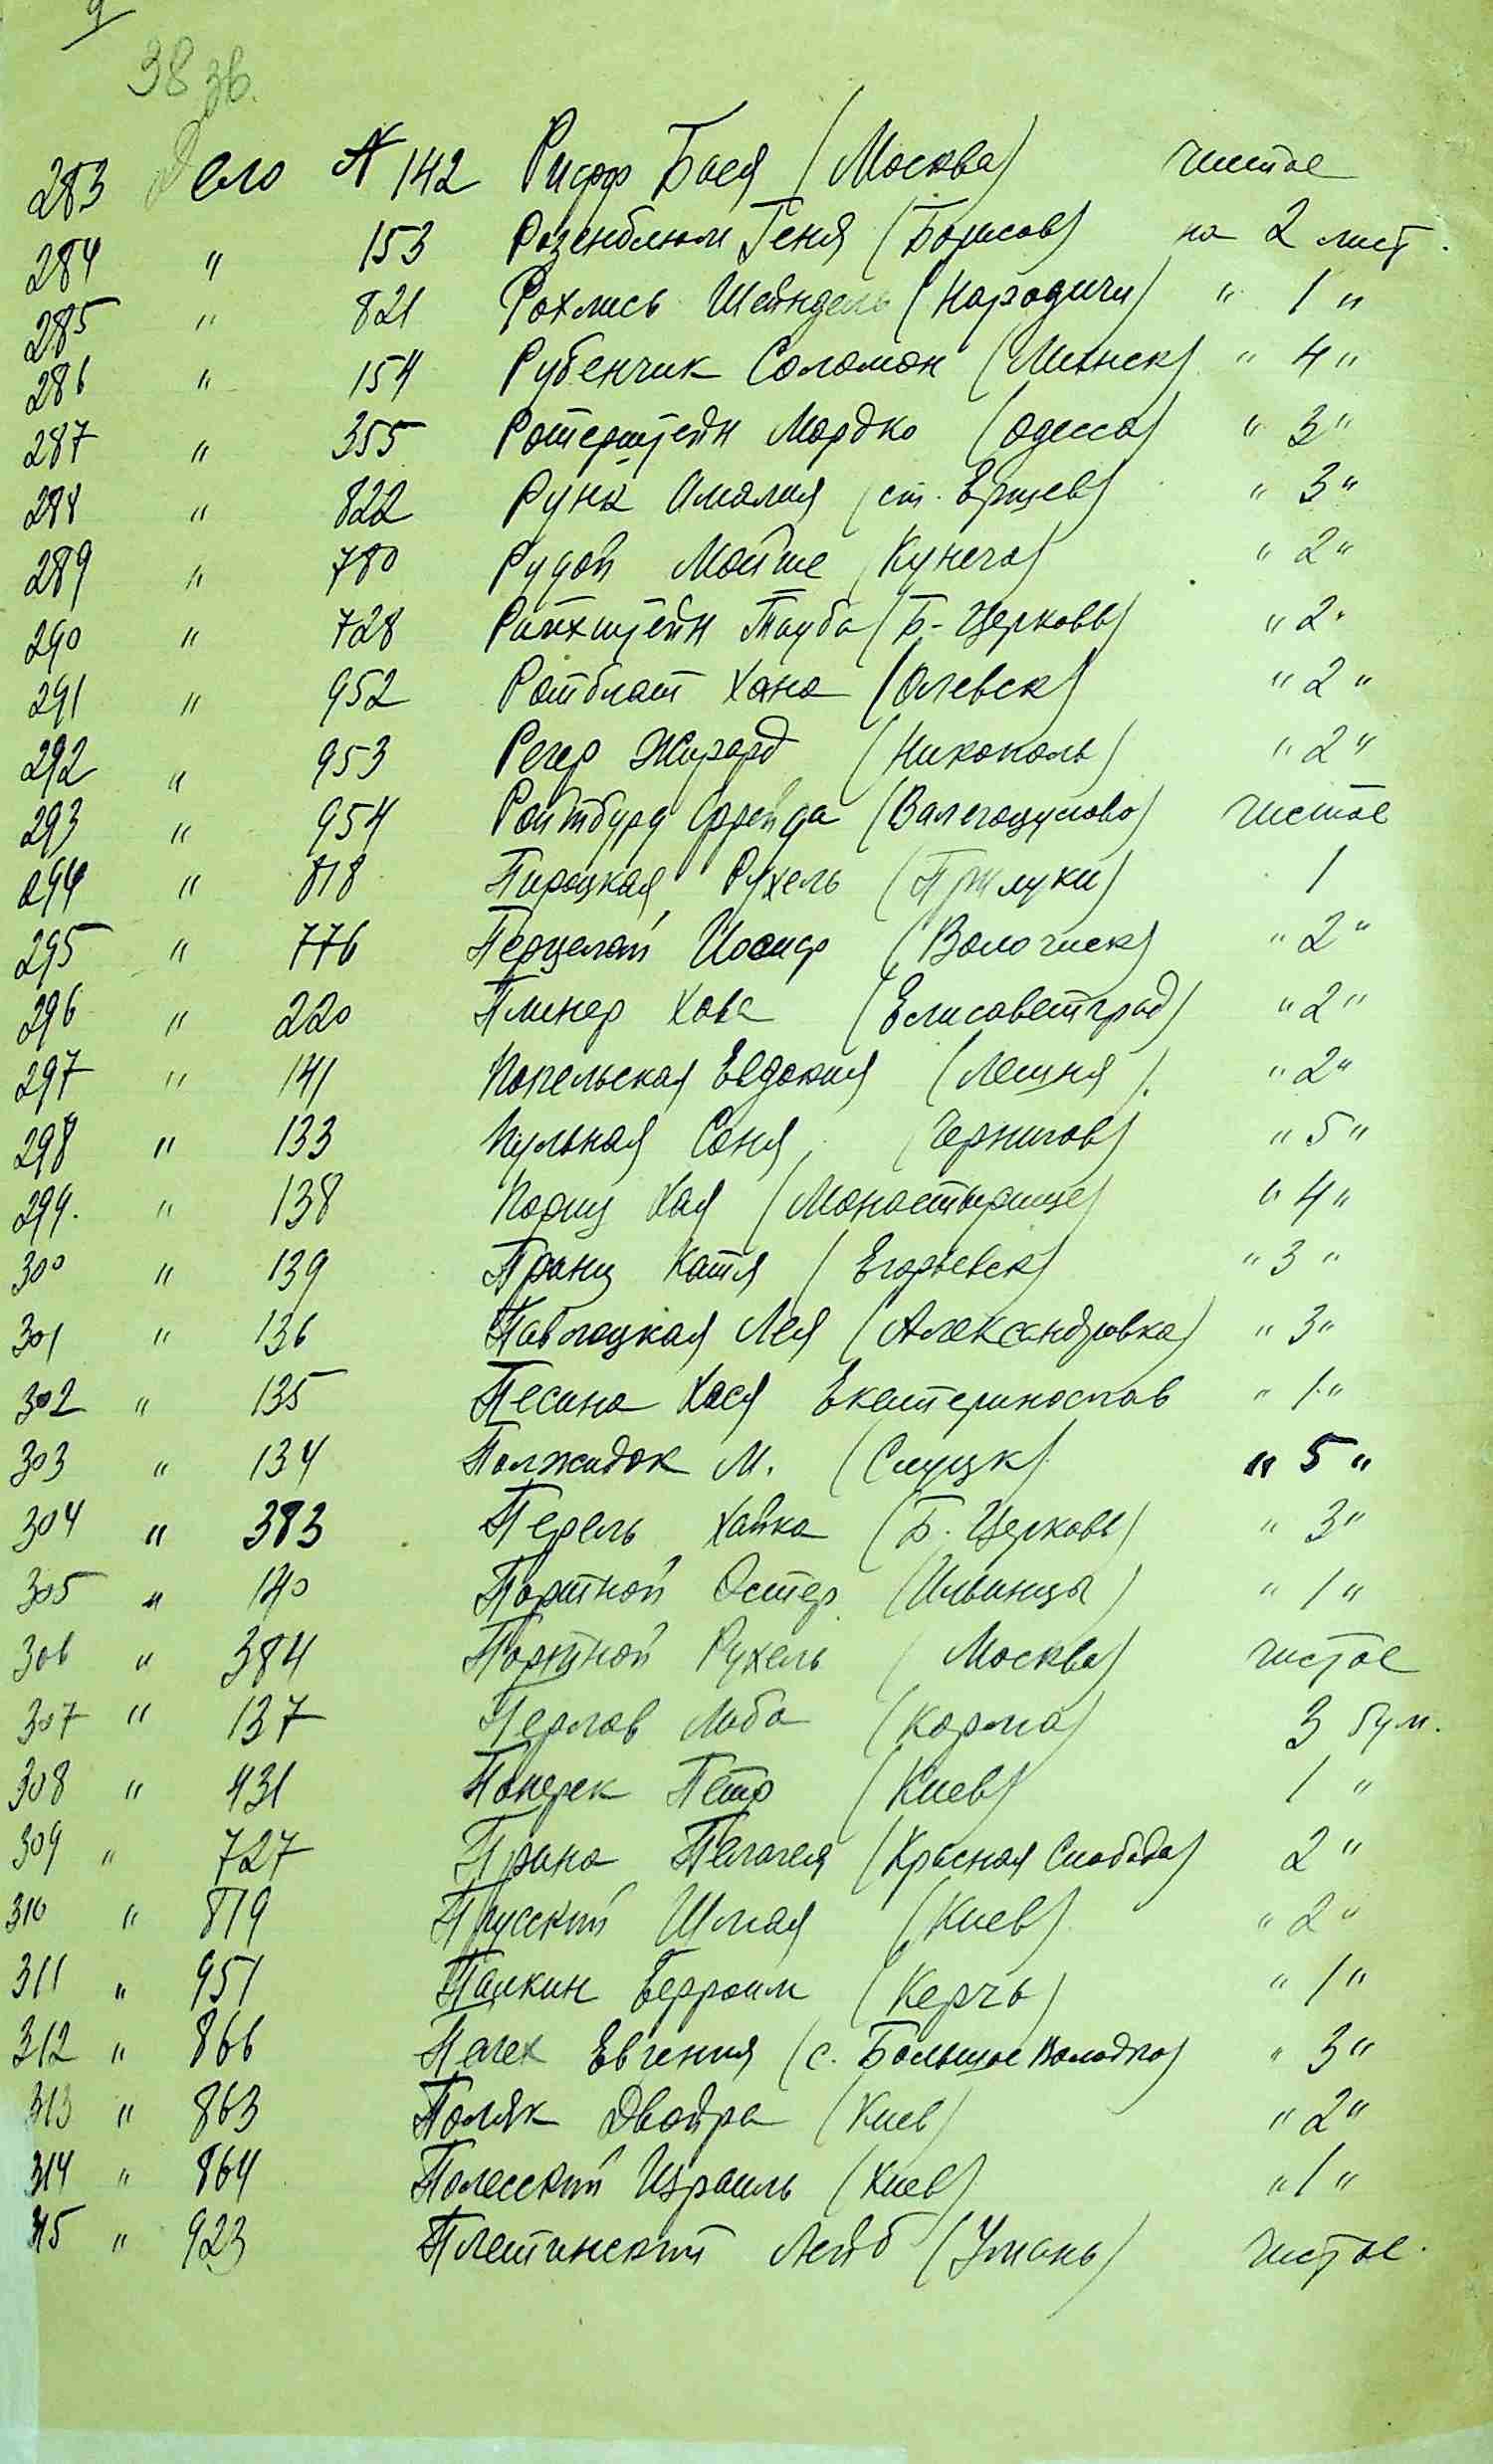 9
38 зв.
283 Дело № 142 Рифф Бася (Москва) чистое
284 " 153 Розенблюм Геня (Борисов) на 2 лист.
285 " 821 Рохлись Шейндель (Народичи) " 1 "
286 " 154 Рубенчик Соломон (Минск) " 4 "
287 " 355 Ротерштейн Мордко (Одесса) " 3 "
288 " 822 Рунк Амалия (ст. ) " 3 "
289 " 780 Рудой Мойше (Кунега) " 2 "
290 " 728 Райхштейн Тауба (Б-Церковь) " 2 "
291 " 952 Ротблат Хана (Олевск) " 2 "
292 " 953 Регер Жирард (Никополь) " 2 "
293 " 954 Ройтбурд Фрейда (Валегоцулово) чистое
294 " 818 Пироцкая Рухель (Прилуки) 1
295 " 776 Перцелай Иосиф (Волочиск) " 2 "
296 " 220 Плинер Хава (Елисаветград) " 2 "
297 " 141 Попельская Евдокия (Лещня). " 2 "
298 " 133 Пульная Соня (Чернигов) " 5 "
299. " 138 Пориц Хая (Монастырище) " 4 "
300 " 139 Пранц Катя (Егорьевск) " 3 "
301 " 136 Павлоцкая Лея (Александровка) " 3 "
302 " 135 Песина Хася Екатеринослав " 1 "
303 " 134 Полжидок М. (Слуцк) " 5 "
304 " 383 Перель Хайка (Б. Церковь) " 3 "
305 " 140 Портной Эстер (Ильинцы) " 1 "
306 " 384 Портной Рухель (Москва) чистое
307 " 137 Перлов Люба (Корма) 3 бум.
308 " 431 Понерек Петр (Киев) 1 "
309 " 727 Прина Пелагея (Красная Слобода) 2 "
310 " 819 Прусский Шмая (Киев) " 2 "
311 " 951 Палкин Берроим (Керчь) " 1 "
312 " 866 Пегех Евгения (с. Большое ) " 3 "
313 " 863 Поляк Двойра (Киев) " 2 "
314 " 864 Полесский Израиль (Киев) " 1 "
315 " 923 Плетинский Лейб (Умань) чистое.